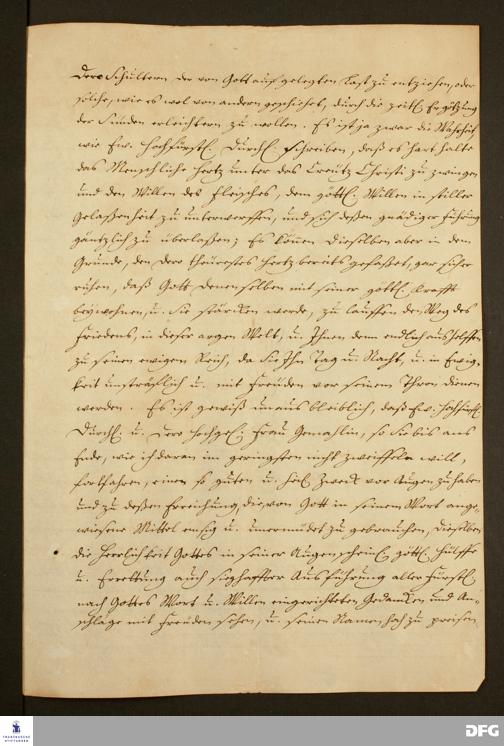 Dero Schultern der von Gott auf gelegten Last zu entziehen, oder
solche, wie es wol von andern geschiehet, durch die zeitl. Ergötzung
der Sünden erleichtern zu wollen. Es ist ja zwar die Wahrheit
wie Ew. Hochfürstl. Durchl. schreiben, daß es hart halte
das Menschliche Hertz unter das Creutz Christi zu zwingen
und den Willen des Fleisches, dem göttl. Willen in stiller
Gelassenheit zu unterwerffen, und sich deßen gnädiger Führung
gäntzlich zu überlaßen; Es können dieselben aber in dem
Grunde, den dero theurestes Hertz bereits gefaßet, gar sicher
ruhen, daß Gott denenselben mit seiner göttl. Krafft
beywohnen, u. Sie stärcken werde, zu lauffen den Weg des
Friedens, in dieser argen Welt, u. Ihnen denn endlich aushelffen
zu seinem ewigen Reich, da Sie Ihn Tag u. Nacht, u. in Ewig-
keit unsträflich u. mit Freuden vor seinem Thron dienen
werden. Es ist gewiß unausbleiblich, daß Ew. Hochfürstl.
Durchl. u. Dero Hochgel. Frau Gemahlin, so Sie bis ans
Ende, wie ich daran im geringsten nicht zweiffeln will,
fortfahren, einen so guten u. heil. Zweck vor Augen zu haben
und zu deßen Erreichung, die von Gott in seinem Wort ange-
wiesene Mittel emsig u. unermüdet zu gebrauchen, dieselben
die Herrlichkeit Gottes in seiner Augenscheinl. göttl. Hülffe
u. Errettung auch sieghaffter Ausführung aller Fürstl.
nach Gottes Wort u. Willen eingerichteten Gedancken und An-
schläge mit Freuden sehen, u. seinen Namen hoch zu preisen
FRANCKESCHE
STIFTUNGEN
DFG